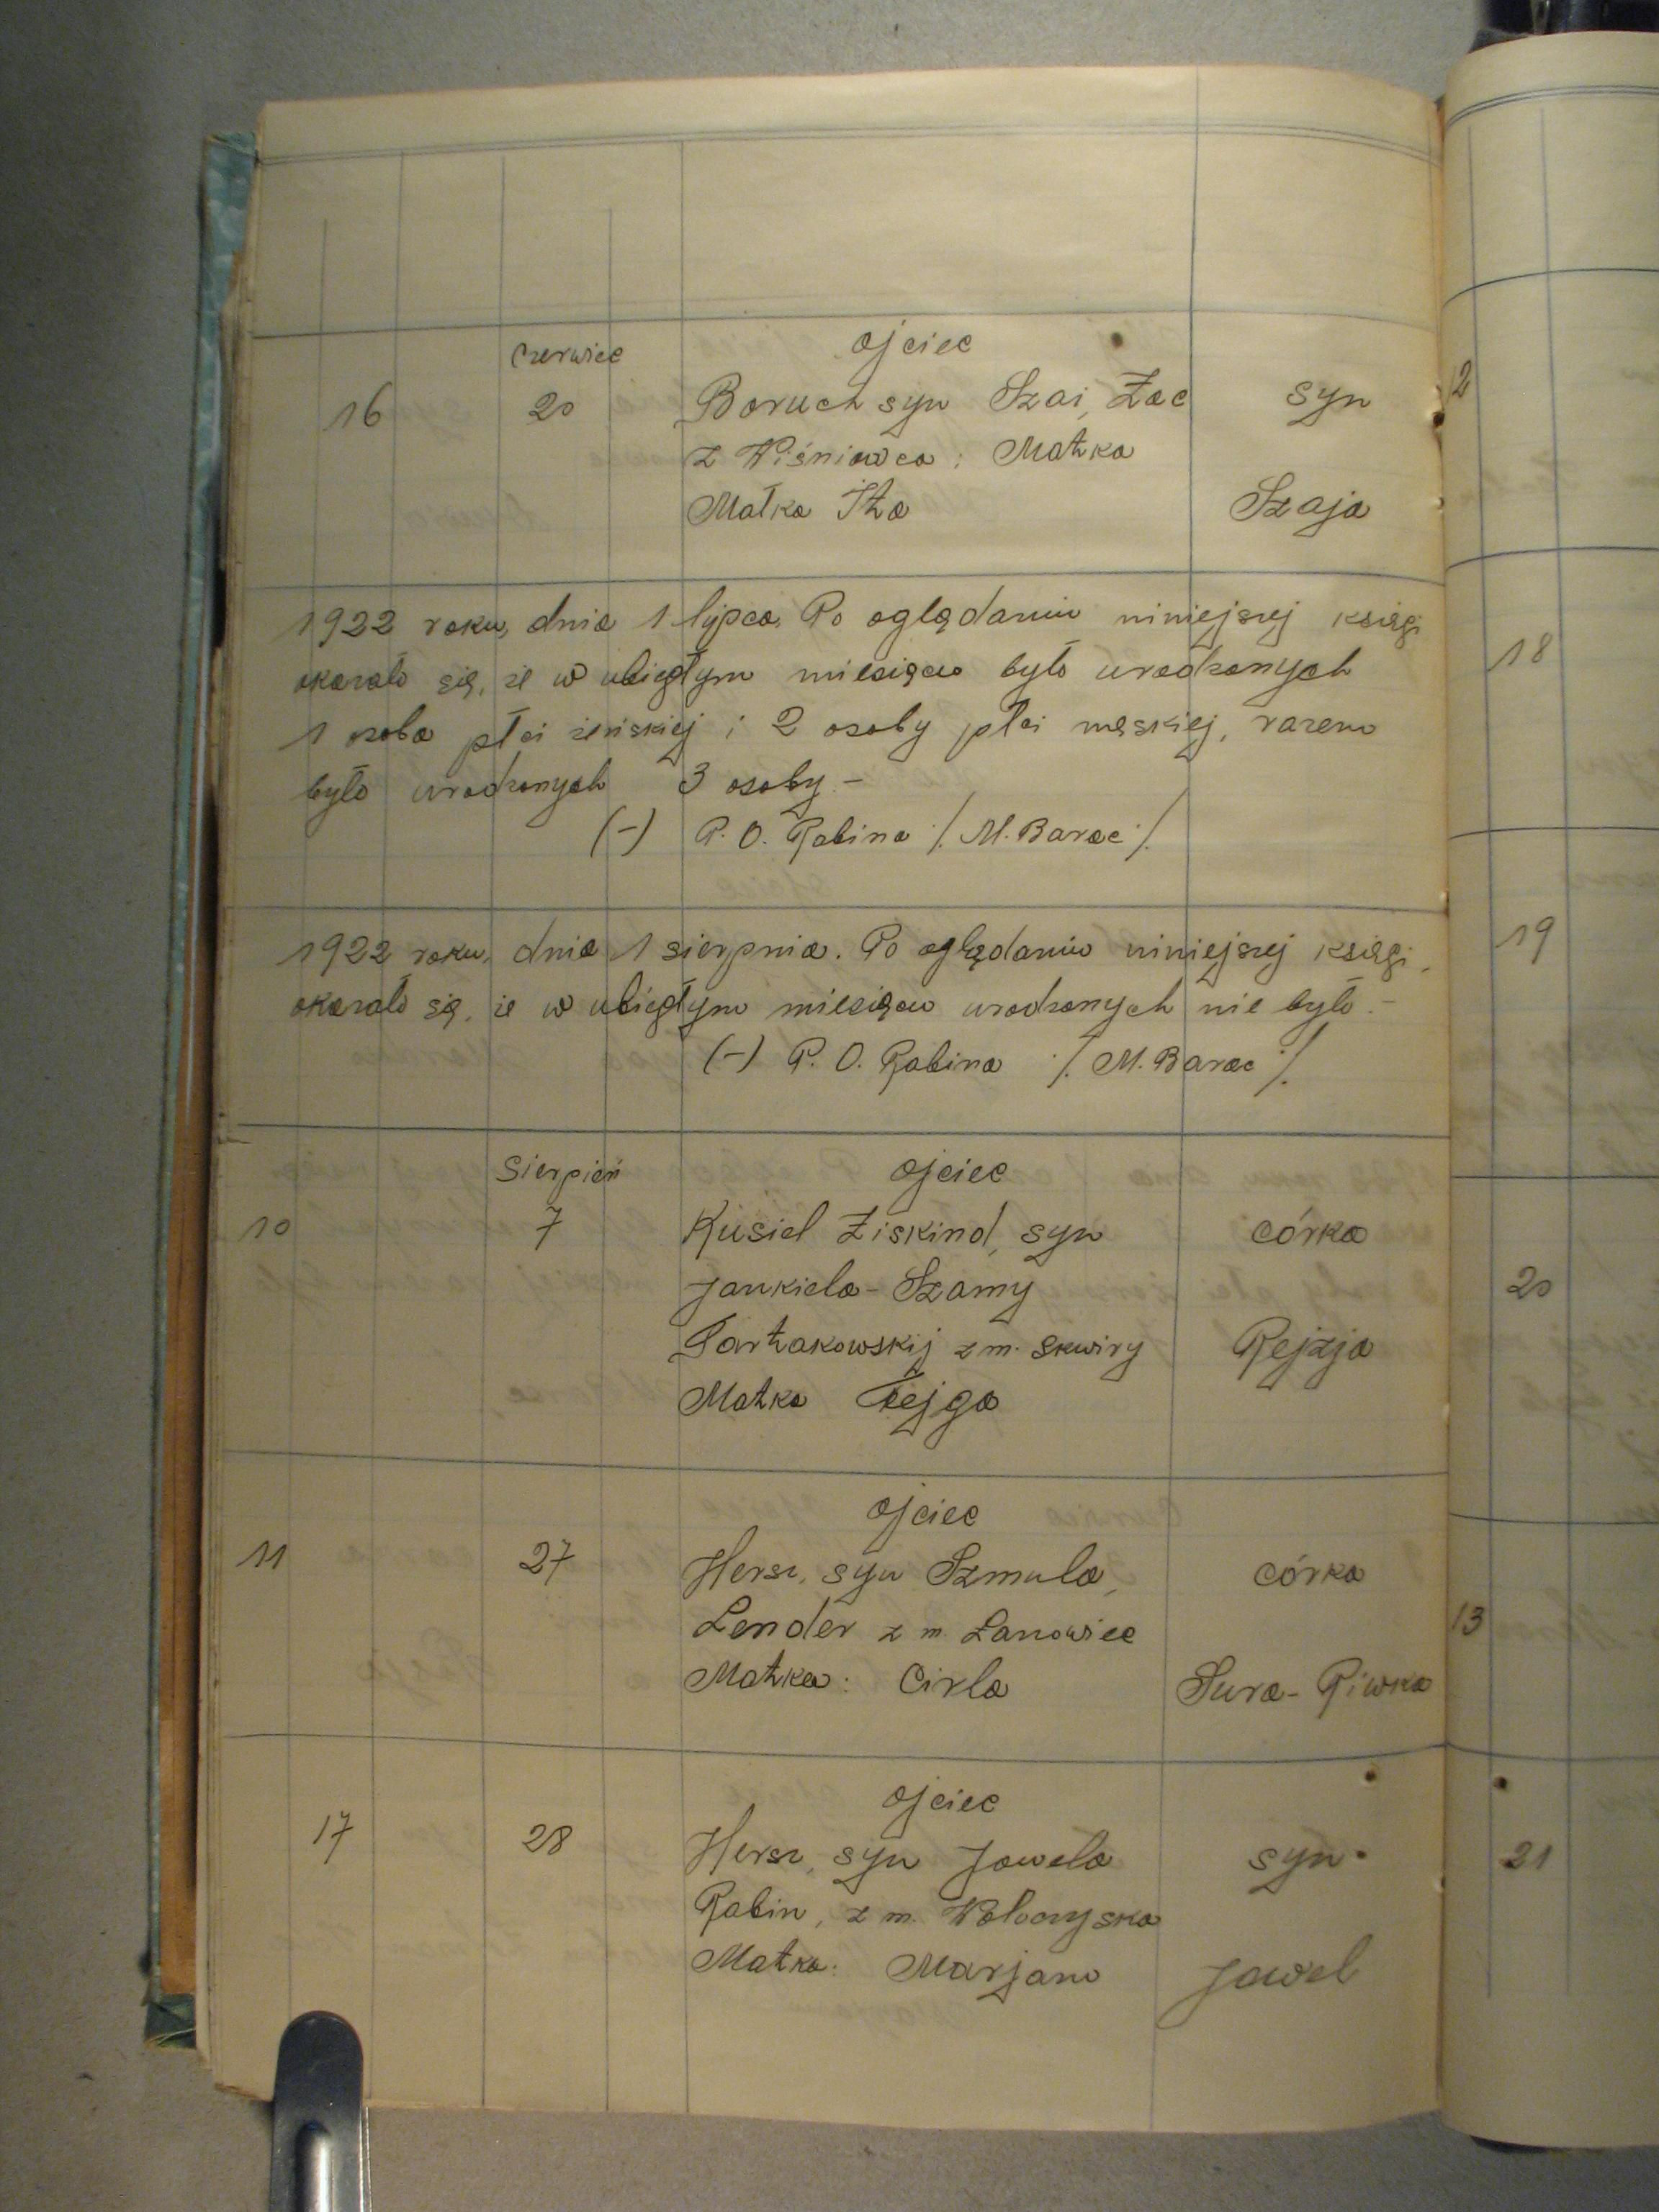 czerwiec ojciec
16 20 Boruch syn Szai, Zac syn
z Wiśniowca; Matka
Małka Ita Szaja
1922 roku, dnia 1 lipca. Po oglądaniu niniejszej księgi
okazało się, że w ubiegłym miesiącu było urodzonych
1 osoba płci żeńskiej i 2 osoby płci męskiej, razem
było urodzonych 3 osoby.-
(-) P. O. Rabina /. M. Barac ./
1922 roku, dnia 1 sierpnia. Po oglądaniu niniejszej księgi,
okazało się, że w ubiegłym miesiącu urodzonych nie było.-
(-) P. O. Rabina ./. M. Barac ./.
Sierpień ojciec
10 7 Kusiel Ziskind, syn córka
Jankiela-Szamy
Tartakowskij z m. Skwiry Rejzja
Matka Fejga
ojciec
11 27 Hersz, syn Szmula, córka
Lender z m. Łanowiec
Matka: Cirla Sura-Riwka
ojciec
17 28 Hersz, syn Jowela syn
Rabin, z m. Wołoczyska
Matka: Marjam Jowel
2
18
19
20
13
21